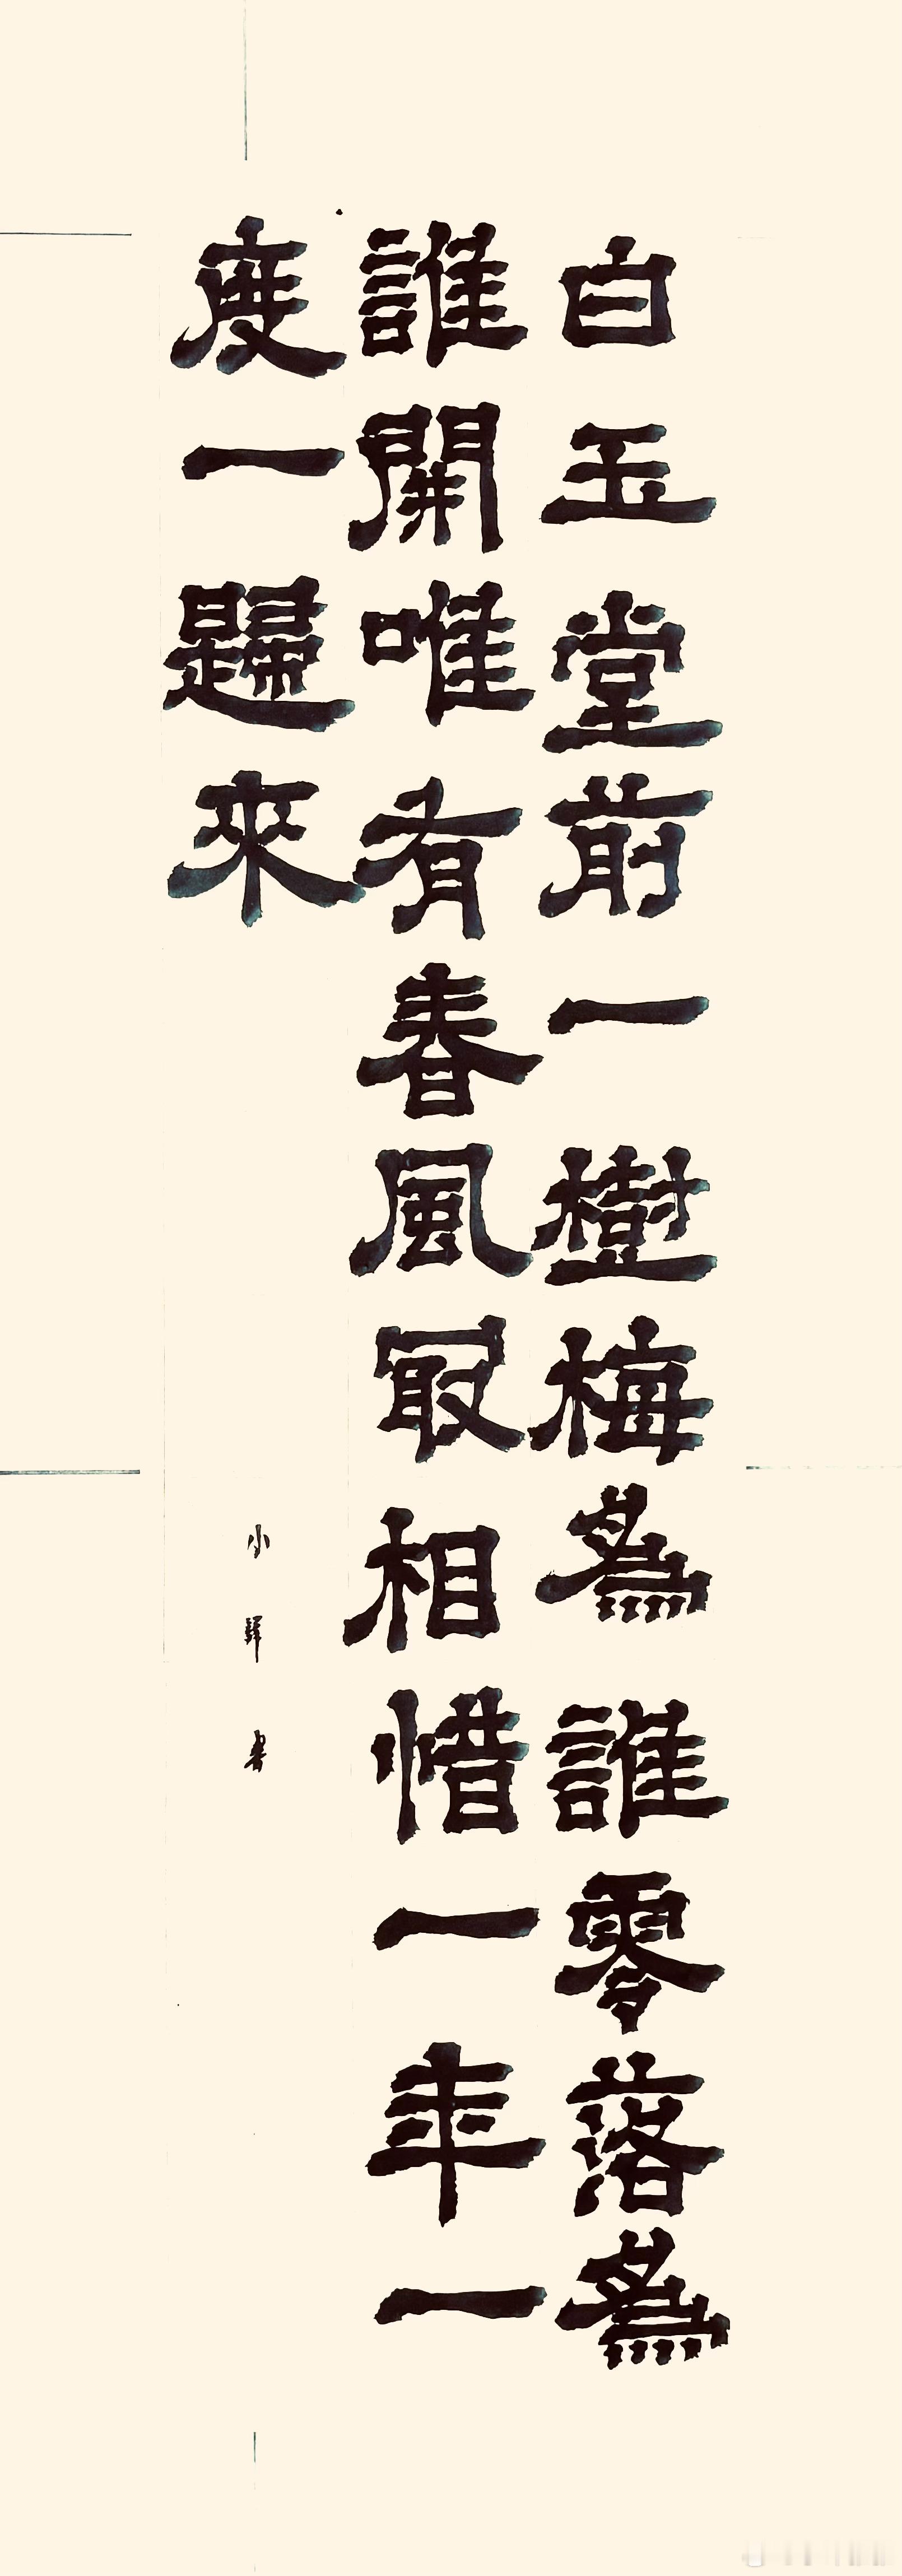 白玉堂前一樹梅為誰零落為
誰開唯有春風最相惜一年一
度一歸來
小輝書